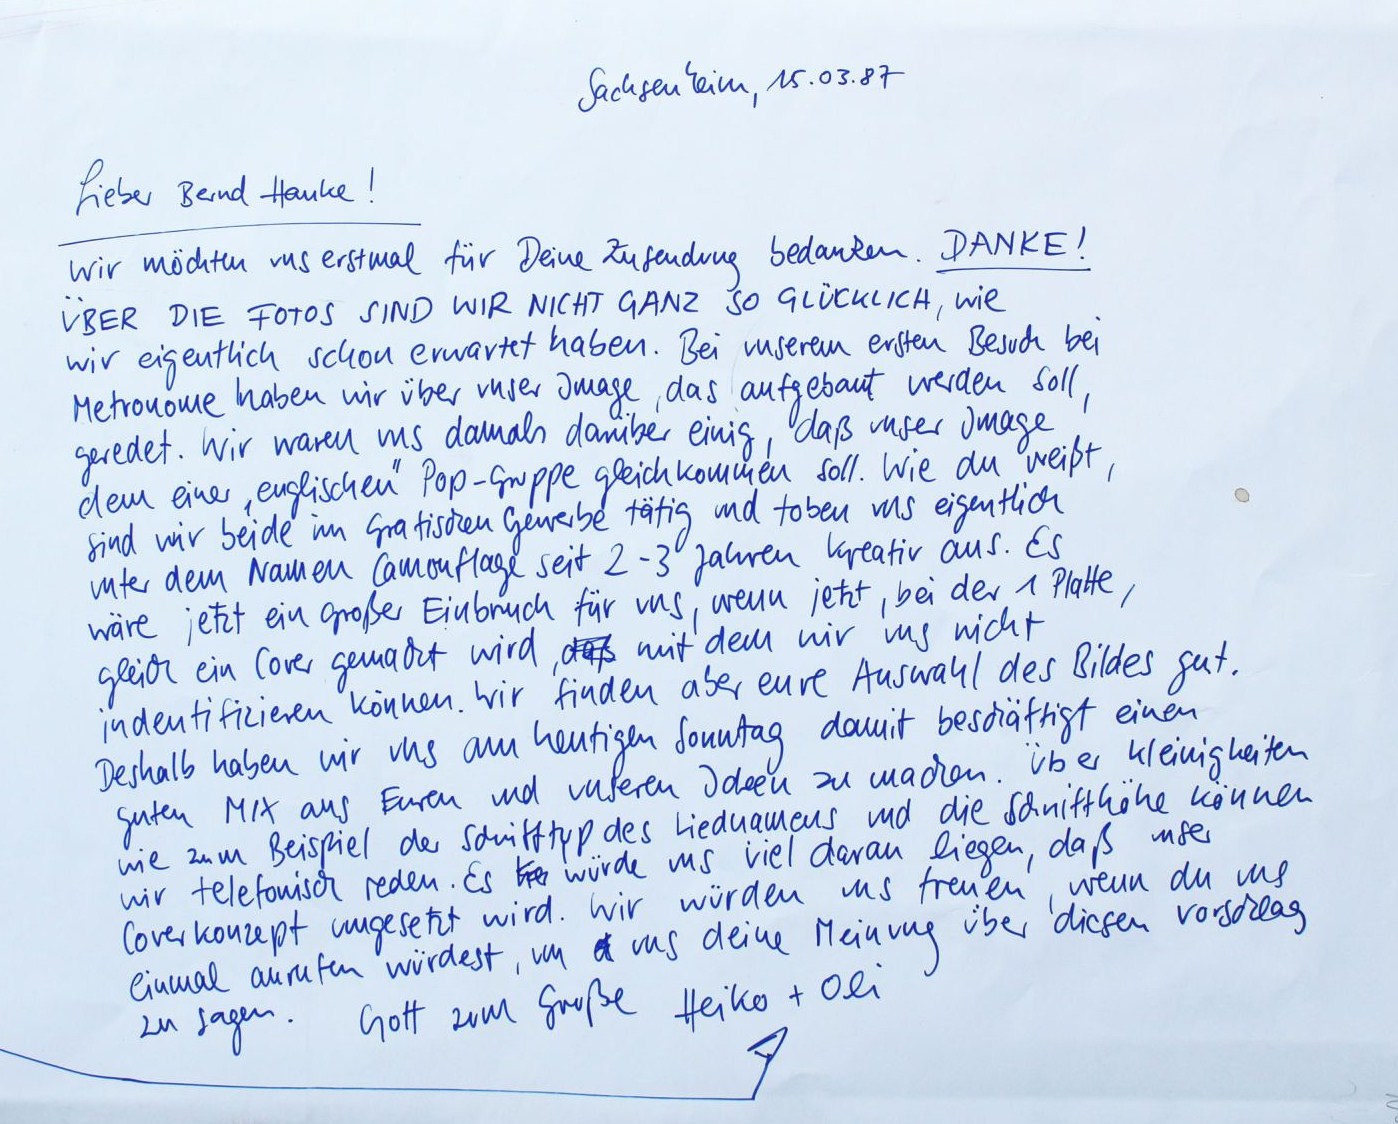 Sachsenheim, 15.03.87
Lieber Bernd Hanke!
Wir möchten uns erstmal für Deine Zusendung bedanken. DANKE!
ÜBER DIE FOTOS SIND WIR NICHT GANZ SO GLÜCKLICH, wie
wir eigentlich schon erwartet haben. Bei unserem ersten Besuch bei
Metronome haben wir über unser Image, das aufgebaut werden soll,
geredet. Wir waren uns damals darüber einig, daß unser Image
dem einer „englischen" Pop-Gruppe gleichkommen soll. Wie du weißt,
sind wir beide im Grafischen Gewerbe tätig und toben uns eigentlich
unter dem Namen Camouflage seit 2-3 Jahren kreativ aus. Es
wäre jetzt ein großer Einbruch für uns, wenn jetzt, bei der 1 Platte,
gleich ein Cover gemacht wird, daß mit dem wir uns nicht
indentifizieren können. Wir finden aber eure Auswahl des Bildes gut.
Deshalb haben wir uns am heutigen Sonntag damit beschäftigt einen
guten MIX aus Euren und unseren Ideen zu machen. Über kleinigkeiten
wie zum Beispiel der Schrifttyp des Liednamens und die Schrifthöhe können
wir telefonisch reden. Es würde uns viel daran liegen, daß unser
Coverkonzept umgesetzt wird. Wir würden uns freuen, wenn du uns
einmal anrufen würdest, um uns deine Meinung über diesen vorschlag
zu sagen. Gott zum Gruße Heiko + Oli